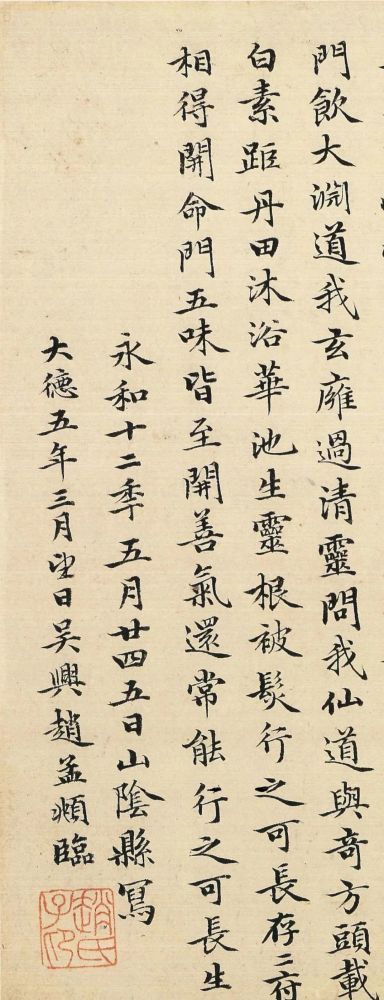 門飲大淵道我玄廱過清靈問我仙道與奇方頭載
白素距丹田沐浴華池生靈根被髮行之可長存二府
相得開命門五味皆至開善氣還常能行之可長生
永和十二年五月廿四五日山陰縣寫
大德五年三月望日吳興趙孟頫臨
趙氏子昂